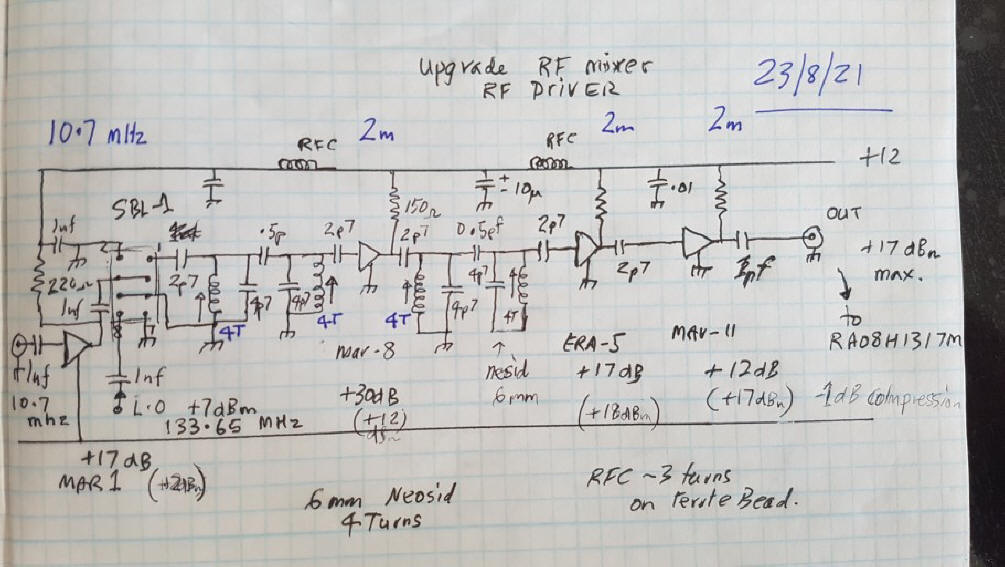 Upgrade RF mixer
RF DrivER
23/8/21
10.7 mHz
RFC
2m
RFC
2m
2m
+12
SBL-1
1nf
.5p
2p7
150Ω
2p7
0.5pf
+ 10µ
2p7
.01
OUT
+17 dBm
max.
220Ω
1nf
2p7
4p7
4p7
4T
4T
4T
4p7
4p7
4T
2p7
1nf
to
RA08H1317M
1nf
10.7
mhz
1nf
L.O +7dBm
133.65 MHz
mar-8
+30dB
(+12)
nesid
6mm
ERA-5
+17dB
(+18dBm)
MAV-11
+12dB
(+17dBm) -1dB compression
+17dB
MAR1 (+2dBm)
6mm Neosid
4 Turns
RFC ~3 turns
on ferrite Bead.